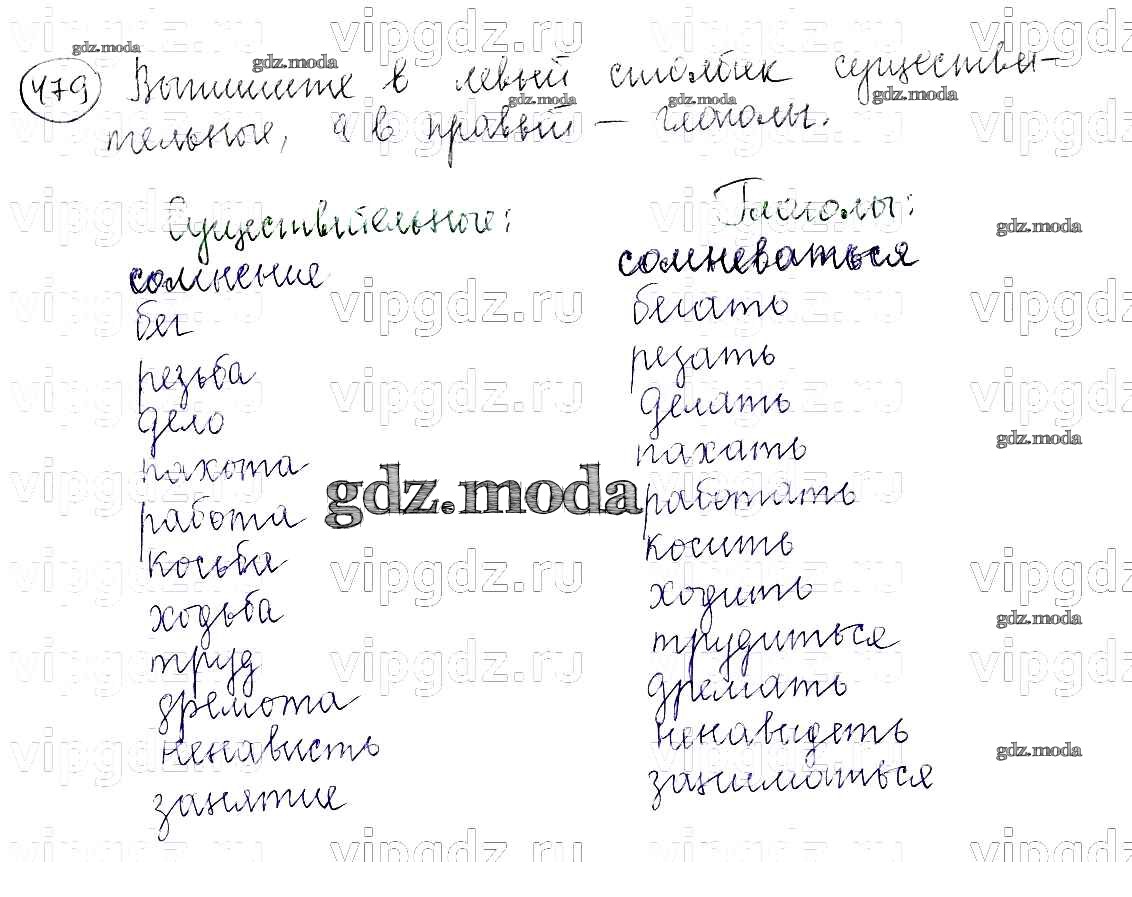 479 Выпишите в левый столбик существи-
тельные, а в правый – глаголы.
Существительные: Глаголы:
сомнение сомневаться
бег бегать
резьба резать
дело делать
пахота пахать
работа работать
косьба косить
ходьба ходить
труд трудиться
дремота дремать
ненависть ненавидеть
занятие заниматься
gdz.moda
vipgdz.ru